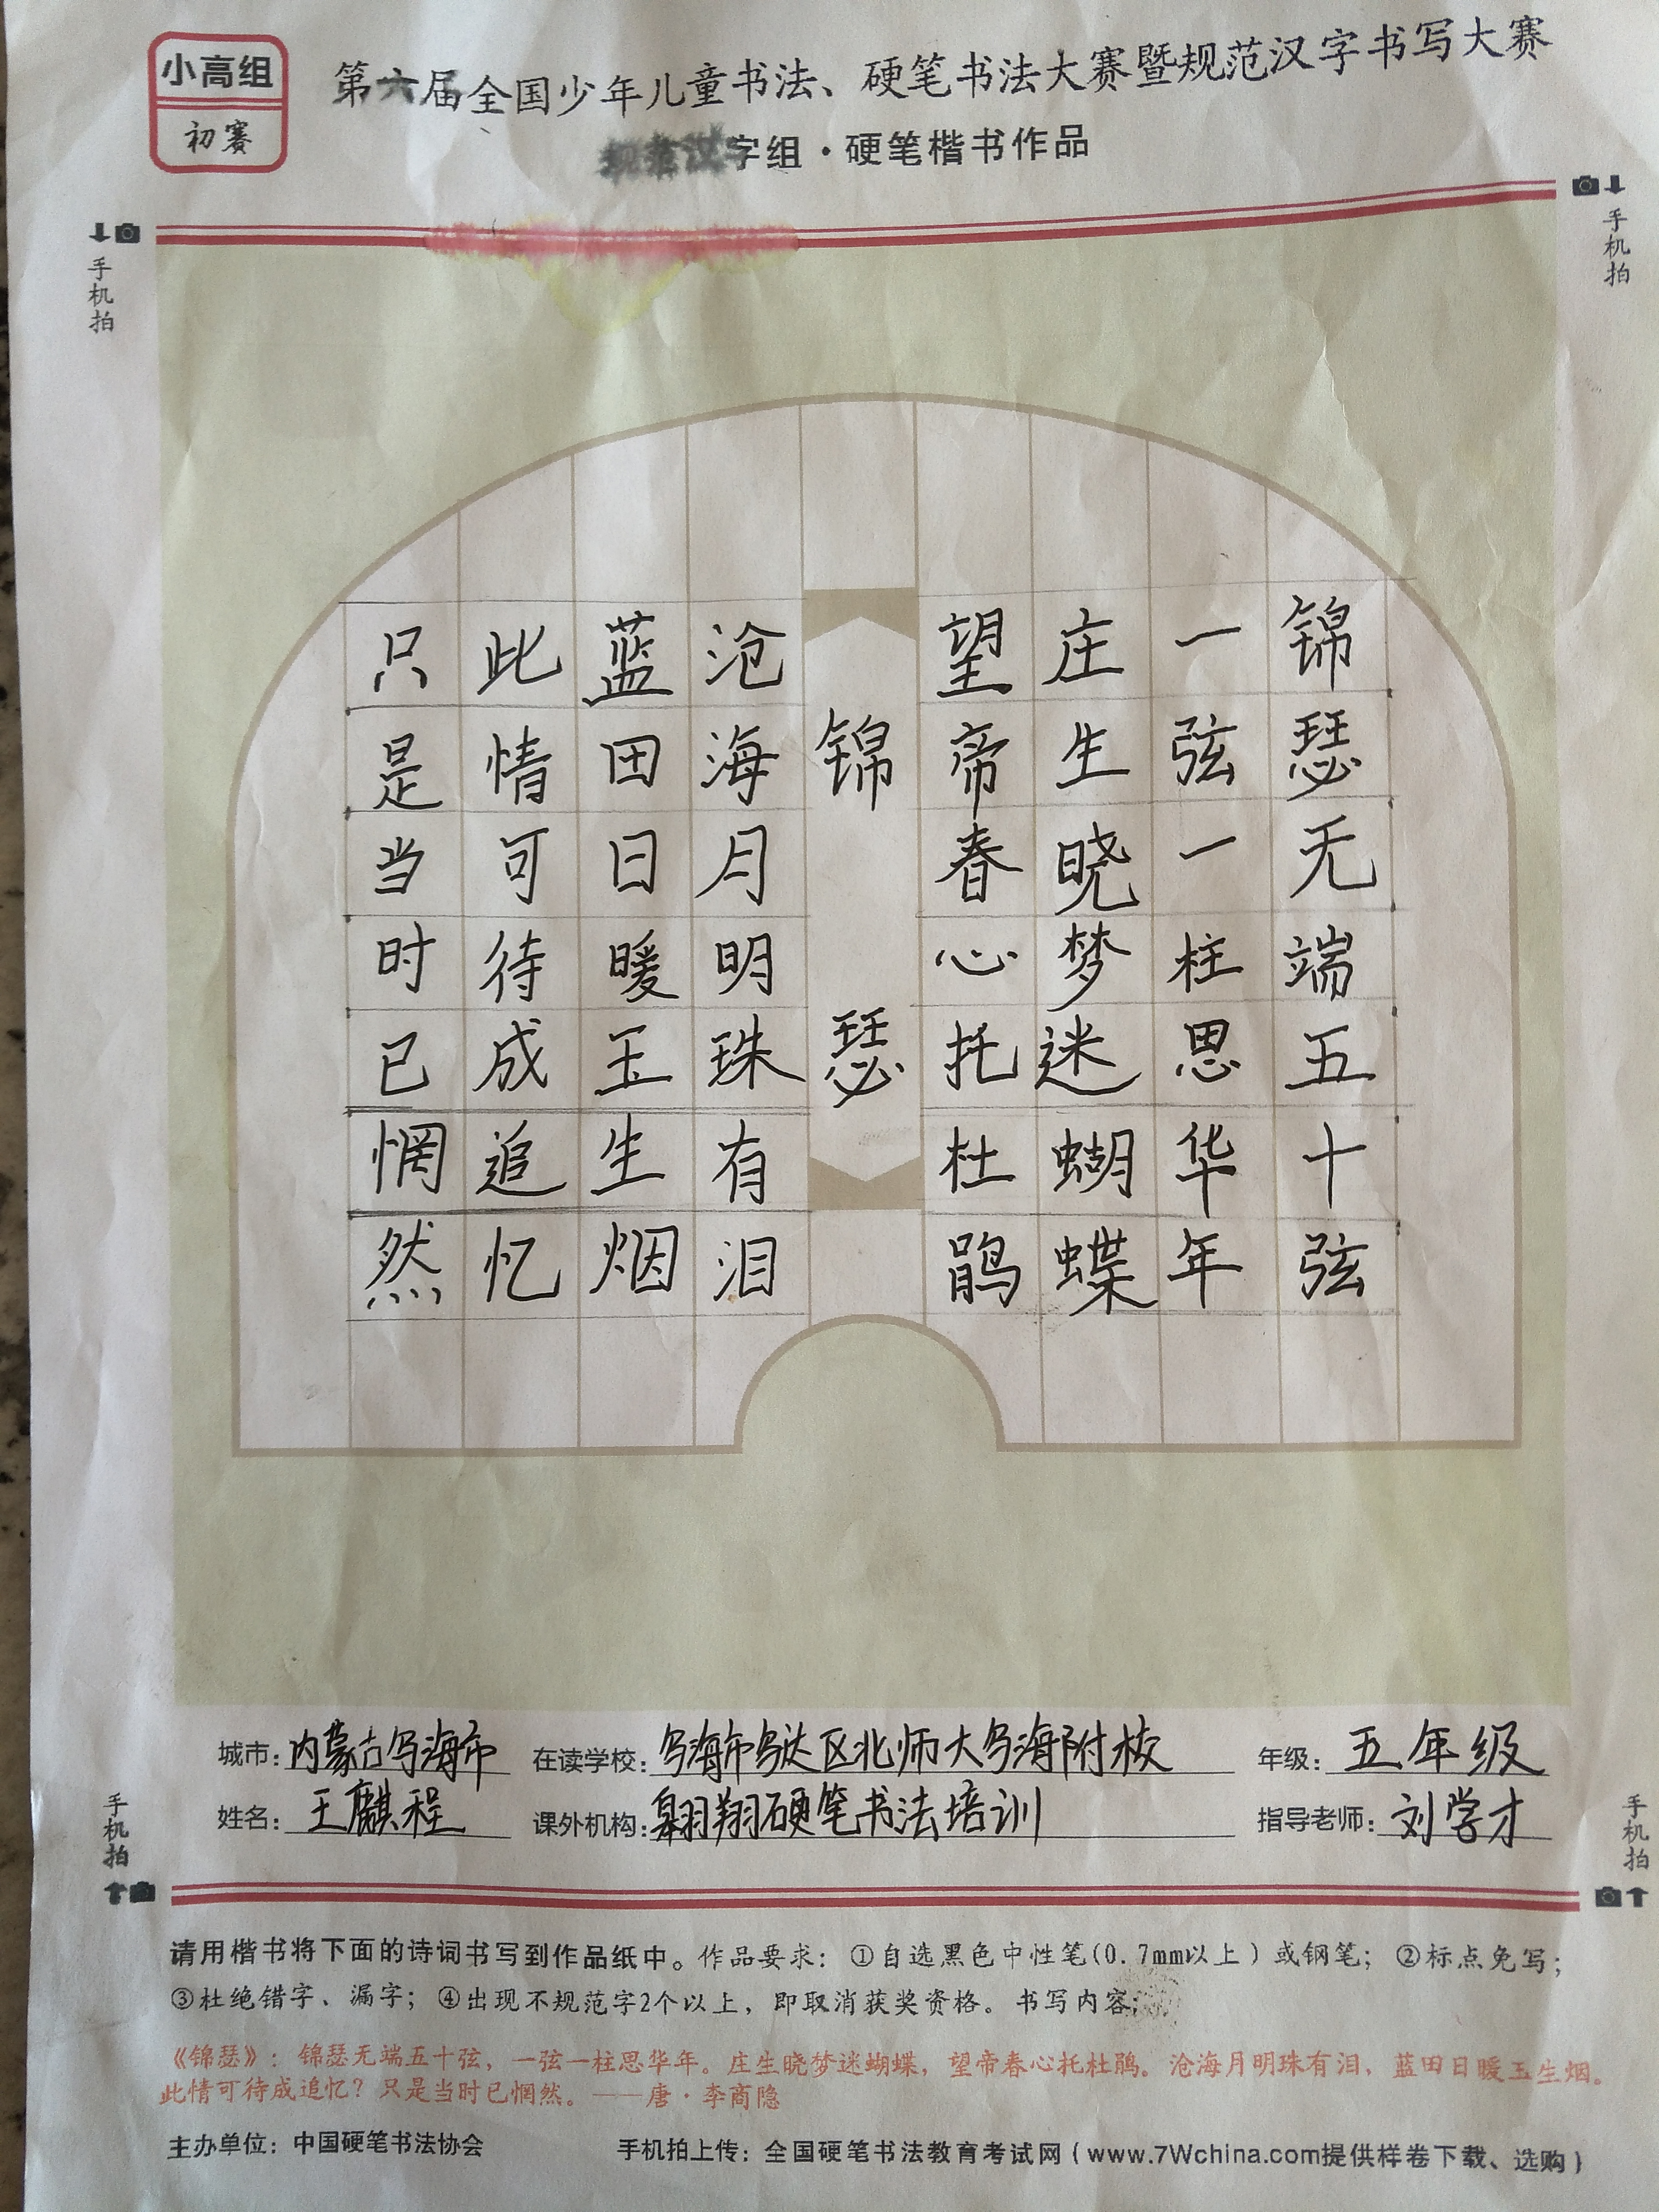 小高组
初赛
第六届全国少年儿童书法、硬笔书法大赛暨规范汉字书写大赛
规范汉字组·硬笔楷书作品
手机拍
手机拍
锦瑟无端五十弦
一弦一柱思华年
庄生晓梦迷蝴蝶
望帝春心托杜鹃
锦瑟
沧海月明珠有泪
蓝田日暖玉生烟
此情可待成追忆
只是当时已惘然
城市：内蒙古乌海市 在读学校：乌海市乌达区北师大乌海附校 年级：五年级
姓名：王麒程 课外机构：翱翔硬笔书法培训 指导老师：刘学才
手机拍
手机拍
请用楷书将下面的诗词书写到作品纸中。作品要求：①自选黑色中性笔(0.7mm以上)或钢笔；②标点免写；
③杜绝错字、漏字；④出现不规范字2个以上，即取消获奖资格。书写内容：
《锦瑟》：锦瑟无端五十弦，一弦一柱思华年。庄生晓梦迷蝴蝶，望帝春心托杜鹃。沧海月明珠有泪，蓝田日暖玉生烟。
此情可待成追忆？只是当时已惘然。——唐·李商隐
主办单位：中国硬笔书法协会 手机拍上传：全国硬笔书法教育考试网（www.7Wchina.com提供样卷下载、选购）